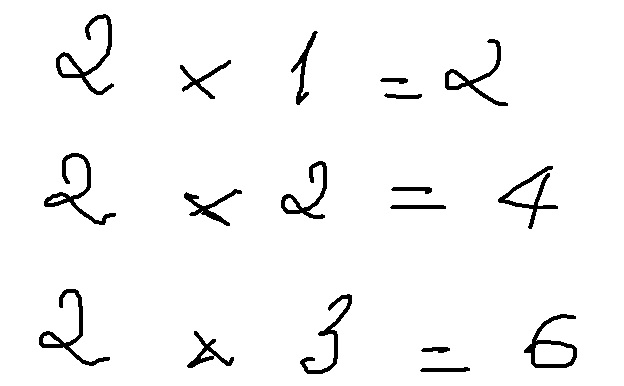 2 × 1 = 2
2 × 2 = 4
2 × 3 = 6